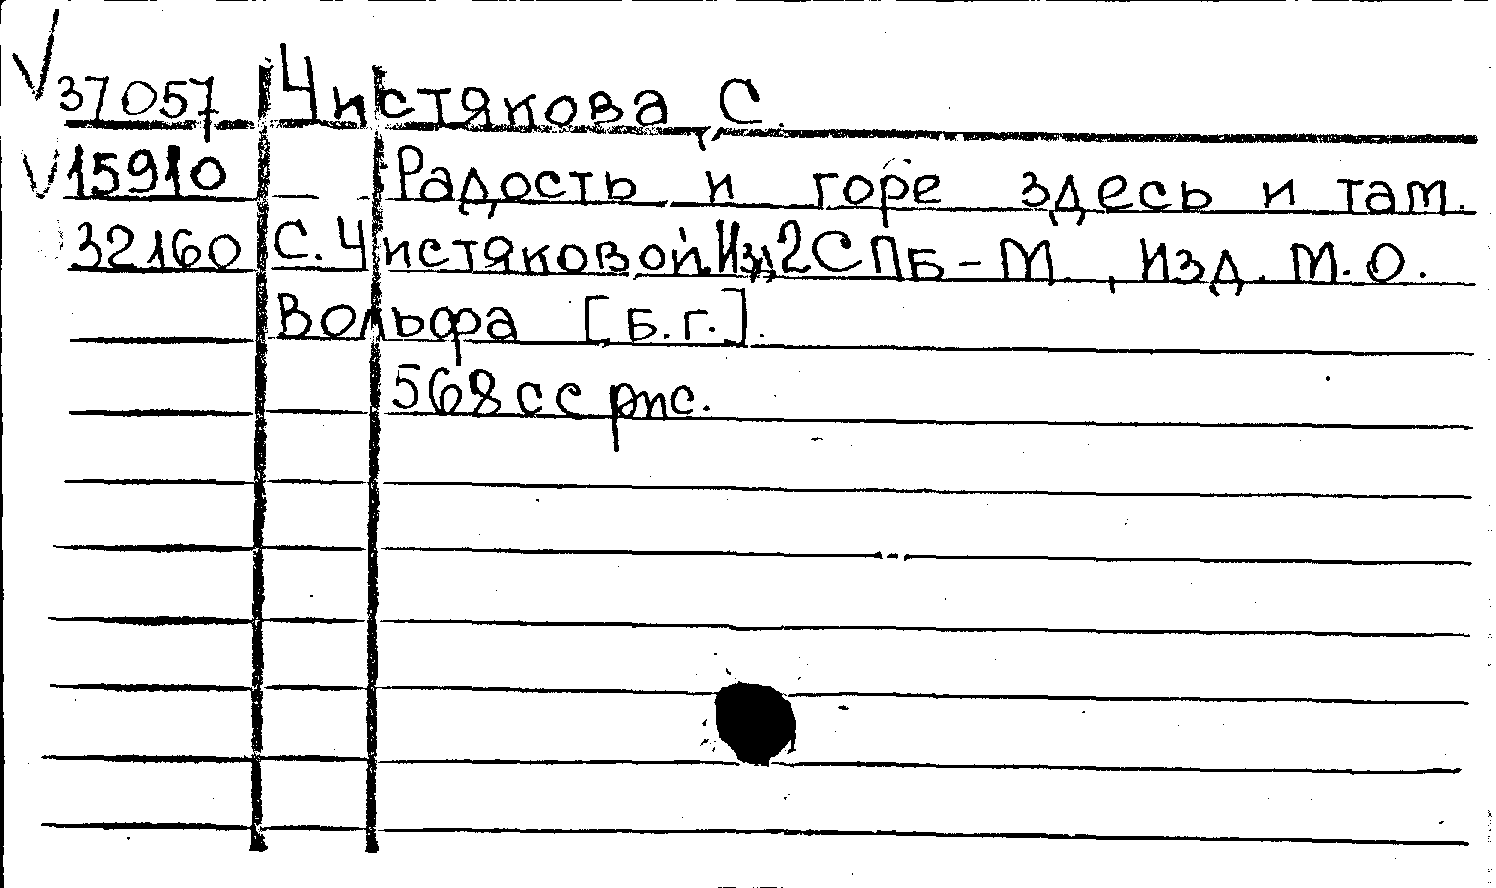 √ 37057 Чистякова, С.
√ 15910 Радость и горе здесь и там.
32160 С. Чистяковой. Изд 2 СПБ - М., Изд. М.О.
Вольфа [Б.г.].
568 с с рис.